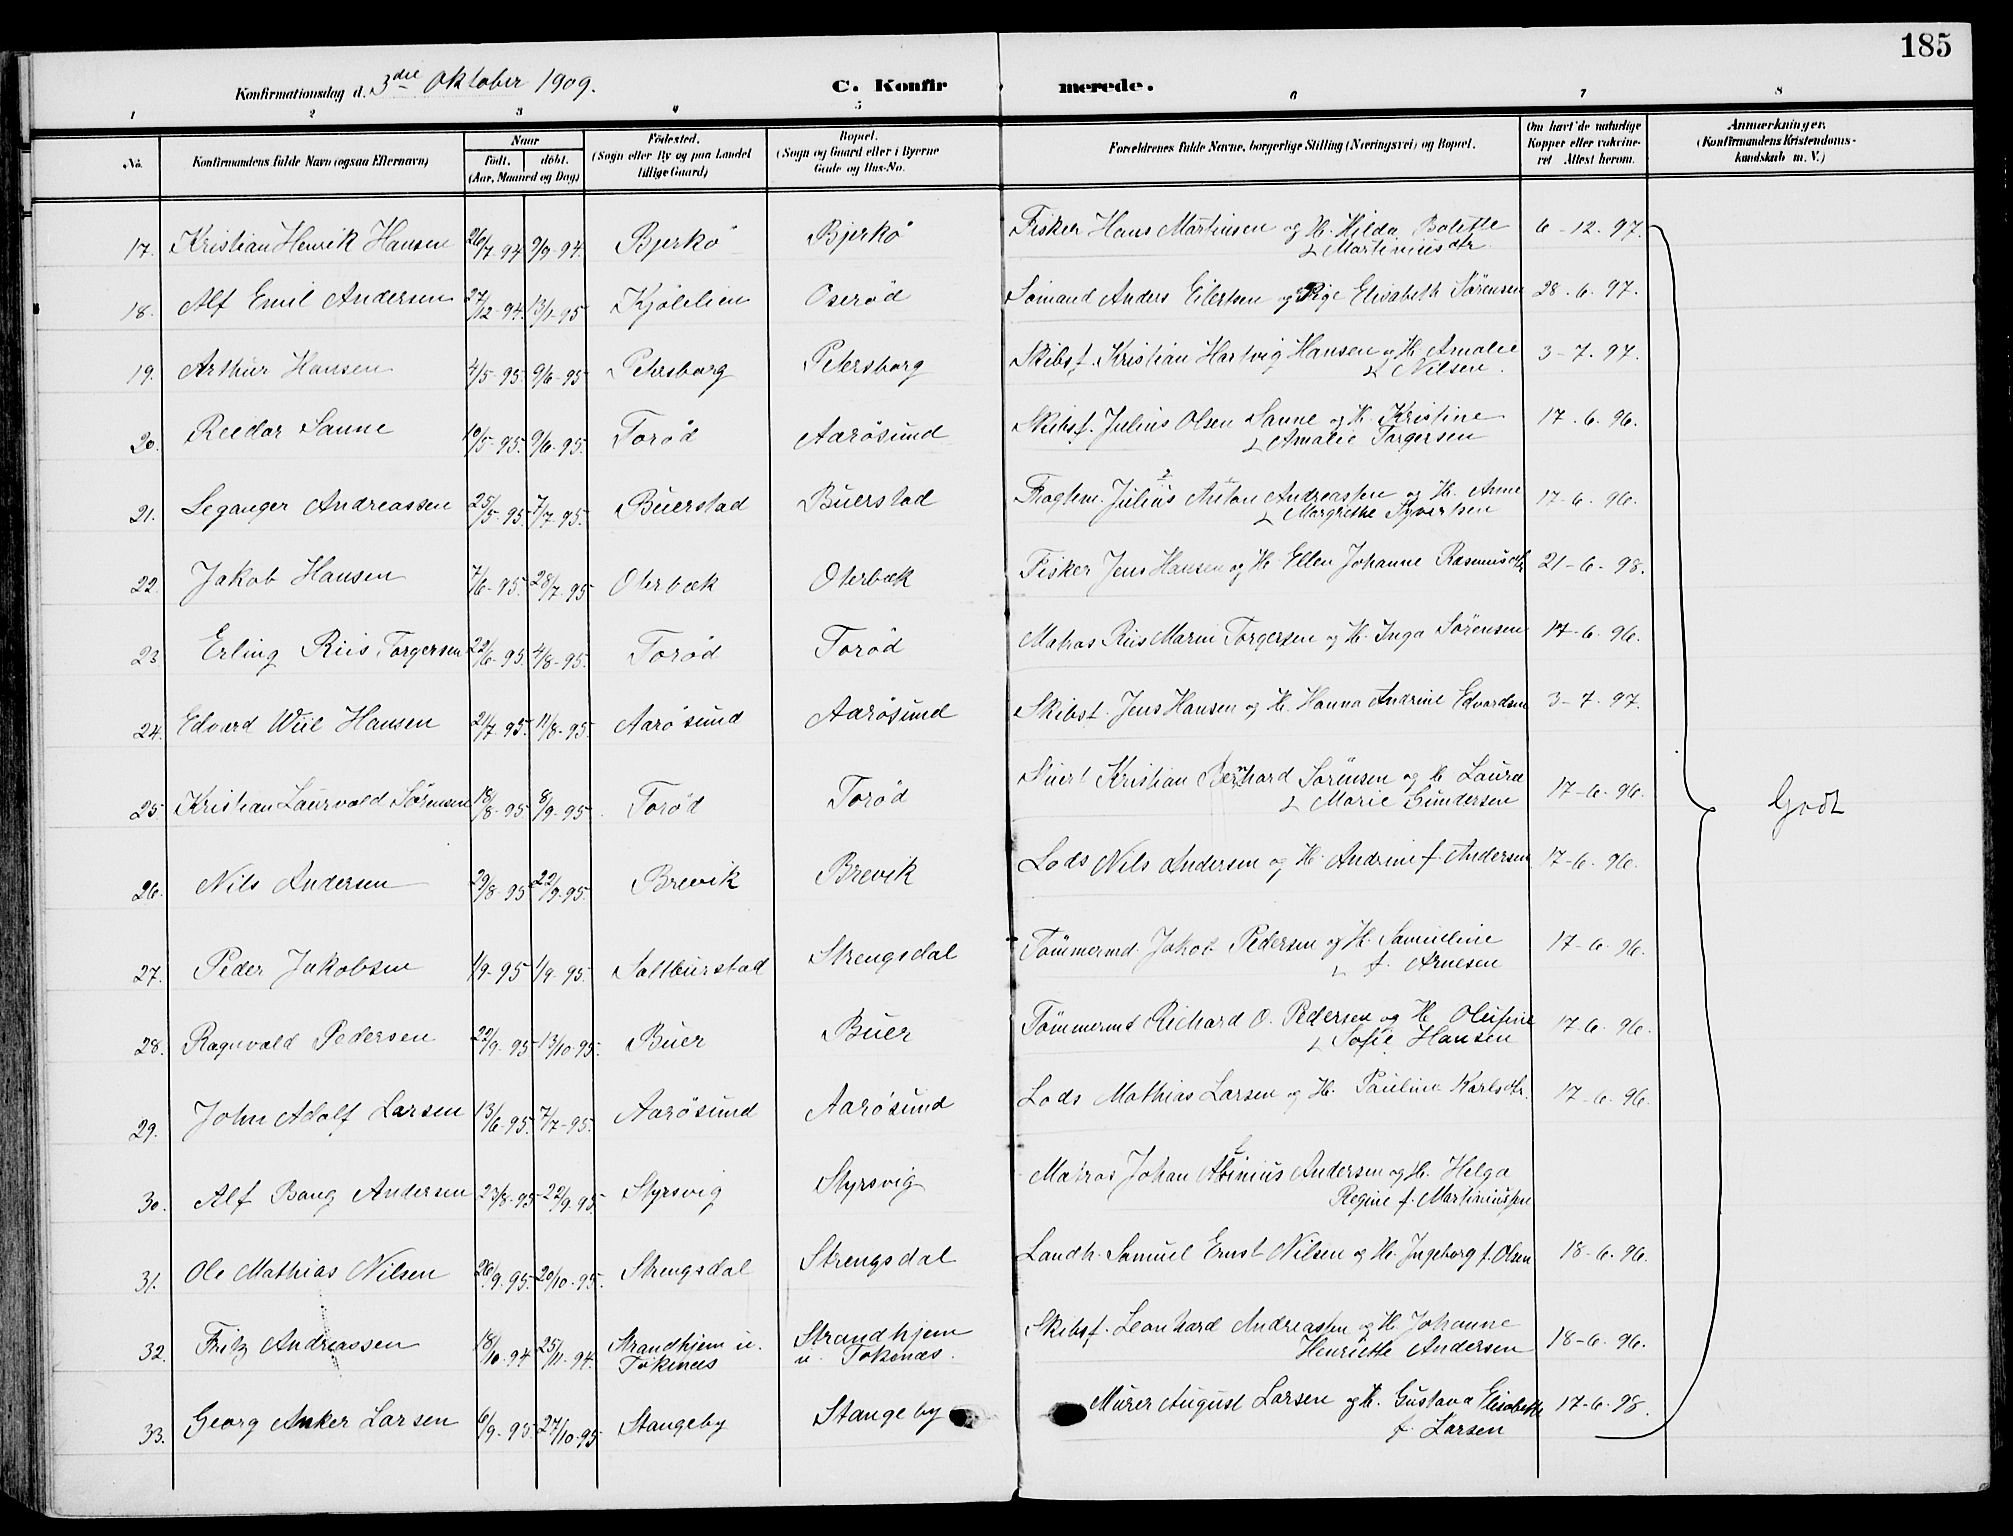 185
Konfirmationsdag d. 3die Oktober 1909. C. Konfirmerede.
1 2 3 4 5 6 7 8
No. Konfirmandens fulde Navn (ogsaa Efternavn) Naar født. døbt. (Aar, Maaned og Dag) Fødested. (Sogn eller By og paa Landet tillige Gaard) Bopæl. (Sogn og Gaard eller i Byerne Gade og Hus-No. Forældrenes fulde Navne, borgerlige Stilling (Næringsvei) og Bopæl. Om havt de naturlige Kopper eller vakcineret Attest herom. Anmærkninger. (Konfirmandens Kristendomskundskab m. V.)
17. Kristian Henrik Hansen 26/7-94 9/9-94. Bjerkö Bjerkö Fisker Hans Martinsen og H. Hilda Bolette 6-12.97.
Martiniusdtr.
18. Alf Emil Andersen 27/12-94. 13/1-95 Kjölilien Oserød Sömand Anders Eilertsen og Pige Elisabeth Sørensen 28.6.97.
19. Arthur Hansen 4/5-95. 9/6-95 Petersborg Petersborg Skibsf. Kristian Hartvig Hansen og H. Amalie 3-7.97.
Nilsen.
20. Reidar Sanne 10/5-95. 9/6-95. Torød Aarøsund Skibsf. Julius Olsen Sanne og H. Kristine 17.6.96.
Amalie Torgersen
21. Leganger Andreassen 25/5-95. 7/7-95. Buerstad Buerstad Fragtem. Julius Anton Andreassen og H. Anne 17-6.96.
Margrethe Syvertsen
22. Jakob Hansen 7/6-95. 28/7-95 Oterbæk Oterbæk Fisker Jens Hansen og H. Ellen Johanne Rasmusdtr 21-6-98.
23 Erling Riis Torgersen 22/6-95. 4/8-95. Torød Torød Matros Riis Marin Torgersen og H. Inga Sörensen 17-6.96.
24. Edvard Wiil Hansen 21/7-95. 11/8-95. Aarøsund Aarøsund Skibsf. Jens Hansen og H. Hanna Andrine Edvardsen 3-7.97.
25 Kristian Laurvald Sørensen 18/8-95. 8/9-95. Torød Torød Stuert Kristian Bernhard Sørensen og H Laura 17-6.96.
Marie Gundersen
26. Nils Andersen 29/8-95 22/9-95. Brevik Brevik Lods Nils Andersen og H. Andrine f. Andersen 17-6.96.
27. Peder Jakobsen 1/9-95 1/9-95. Saltbuerstad Strengsdal Tømmermd. Jakob Pedersen og H. Samueline 17-6-96.
f. Arnesen
28. Ragnvald Pedersen 22/9-95 13/10-95. Buer Buer Tømmermd Richard O. Pedersen og H. Olufine 17-6.96.
Sofie Hansen
29. John Adolf Larsen 13/6-95. 7/7-95. Aarøsund Aarøsund Lods Mathias Larsen og H. Pauline Karlsdtr. 17-6.96.
30. Alf Bang Andersen 23/8-95 22/9.95. Styrsvig Styrsvig Matros Johan Abinius Andersen og H. Helga
Regine f. Martiniussen
31. Ole Mathias Nilsen 26/9.95. 20/10-95. Strengsdal Strengsdal Landh. Samuel Ernst Nilsen og H. Ingeborg f. Olsen 18-6.96.
32. Fritz Andreassen 18/10-94 25/11-94. Strandhjem u. Strandhjem Skibsf. Leonhard Andreassen og H. Johanne 18-6.96.
Tokenæs u. Tokenæs. Henriette Andersen
33. Georg Anker Larsen 6/9-95. 27/10-95 Stangeby Stangeby Murer August Larsen og H. Gustava Elisabeth 17-6.98.
f. Larsen
Godt